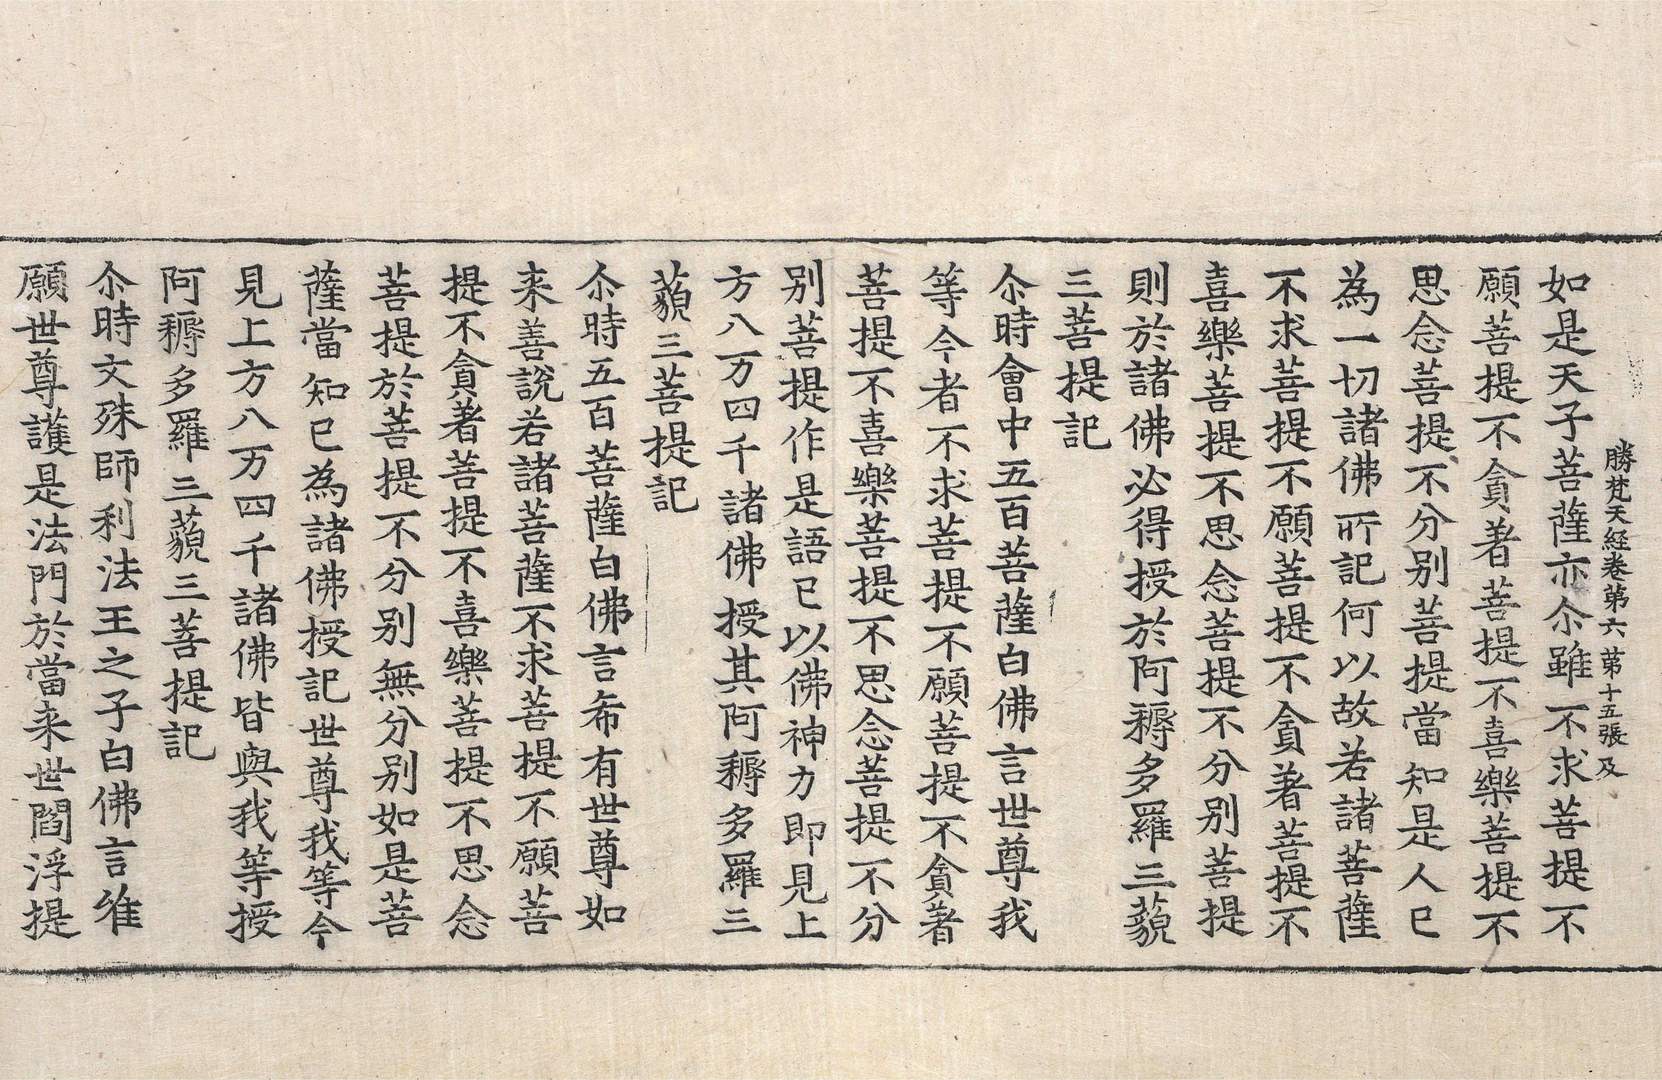 勝梵天経卷第六 第十五張 及
如是天子菩薩亦尒雖不求菩提不
願菩提不貪著菩提不喜樂菩提不
思念菩提不分别菩提當知是人已
為一切諸佛所記何以故若諸菩薩
不求菩提不願菩提不貪著菩提不
喜樂菩提不思念菩提不分别菩提
則於諸佛必得授於阿耨多羅三藐
三菩提記
尒時會中五百菩薩白佛言世尊我
等今者不求菩提不願菩提不貪著
菩提不喜樂菩提不思念菩提不分
别菩提作是語已以佛神力即見上
方八万四千諸佛授其阿耨多羅三
藐三菩提記
尒時五百菩薩白佛言希有世尊如
来善說若諸菩薩不求菩提不願菩
提不貪著菩提不喜樂菩提不思念
菩提於菩提不分别無分别如是菩
薩當知已為諸佛授記世尊我等今
見上方八万四千諸佛皆與我等授
阿耨多羅三藐三菩提記
尒時文殊師利法王之子白佛言唯
願世尊護是法門於當来世閻浮提